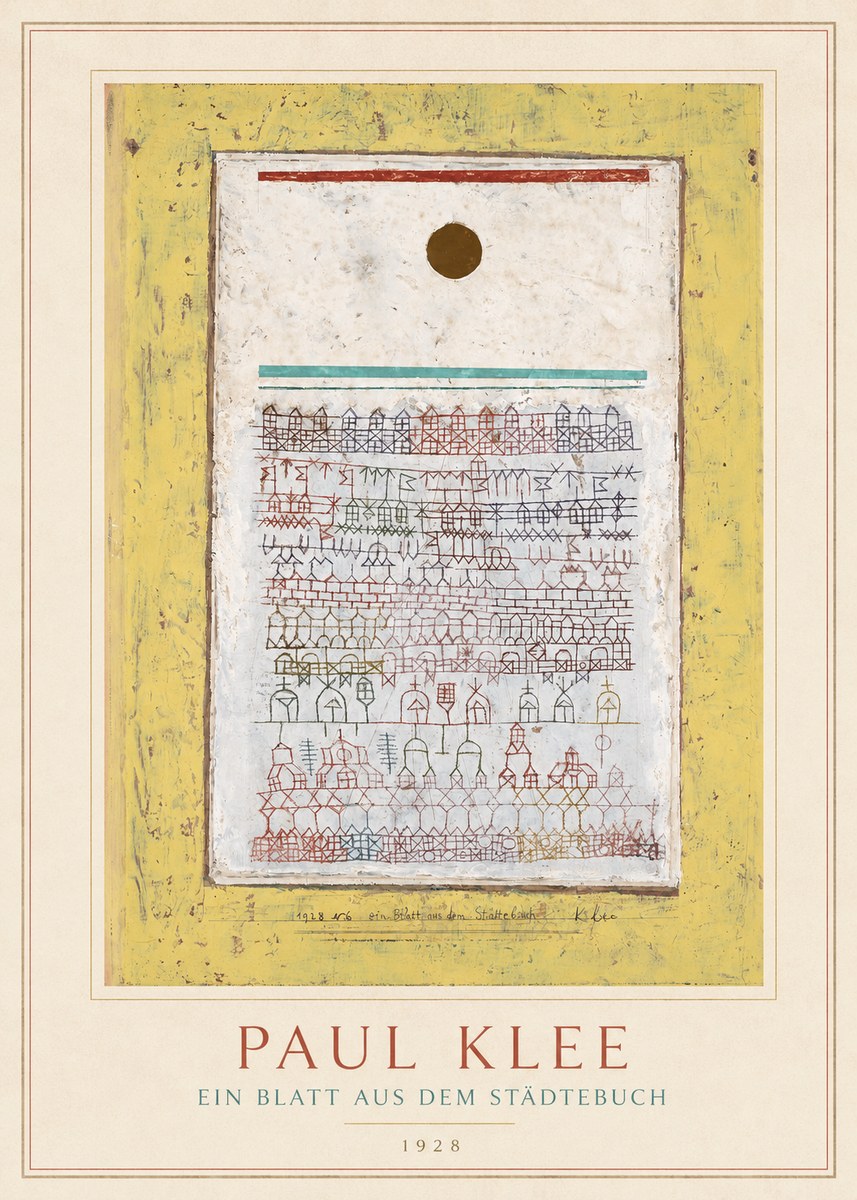 1928 N6 ein Blatt aus dem Städtebuch Klee
PAUL KLEE
EIN BLATT AUS DEM STÄDTEBUCH
1928